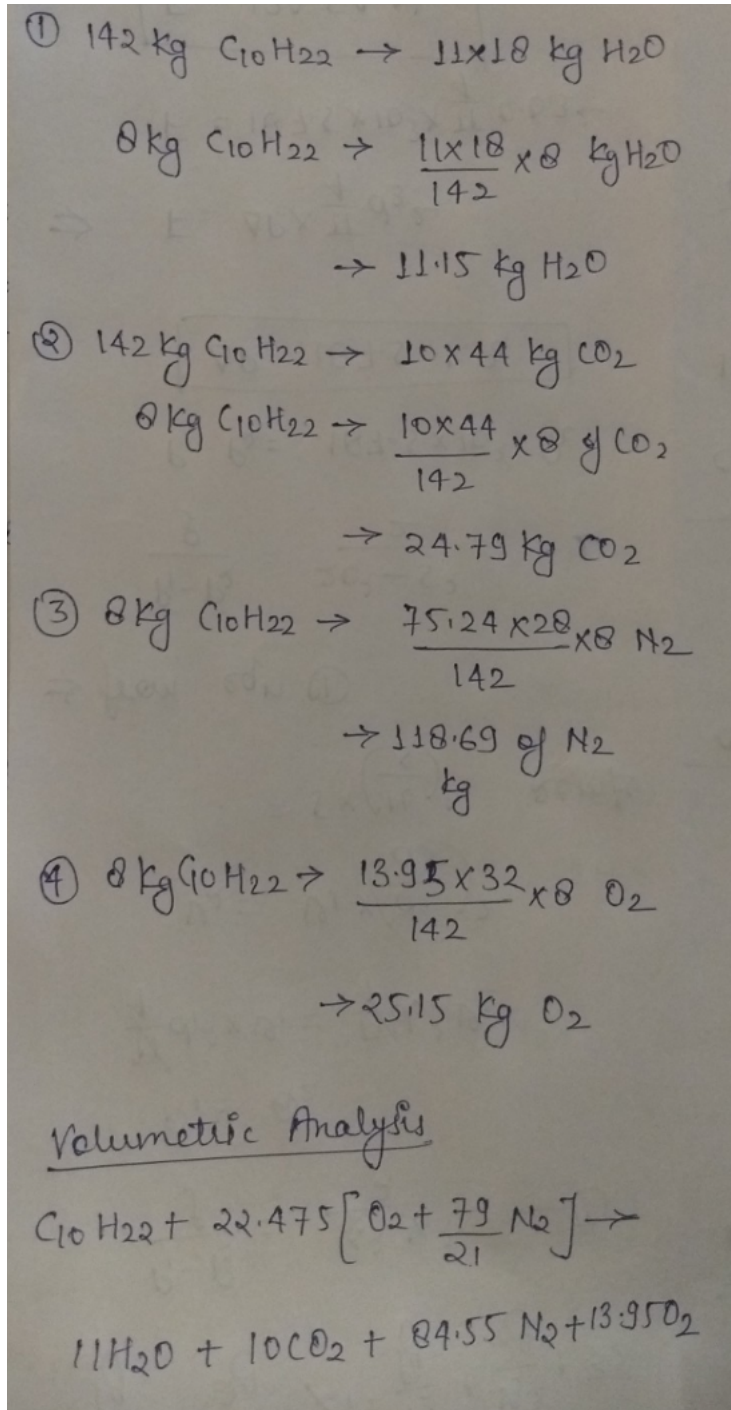 ① 142 kg C10H22 → 11×18 kg H2O
8kg C10H22 → 11×18/142 ×8 kg H2O
→ 11.15 kg H2O
② 142 kg C10H22 → 10×44 kg CO2
8kg C10H22 → 10×44/142 ×8 of CO2
→ 24.79 kg CO2
③ 8kg C10H22 → 75.24×28/142 ×8 N2
→ 118.69 of N2
kg
④ 8kg C10H22 → 13.95×32/142 ×8 O2
→ 25.15 kg O2
Volumetric Analysis
C10H22 + 22.475[O2 + 79/21 N2] →
11H2O + 10CO2 + 84.55 N2 + 13.95O2